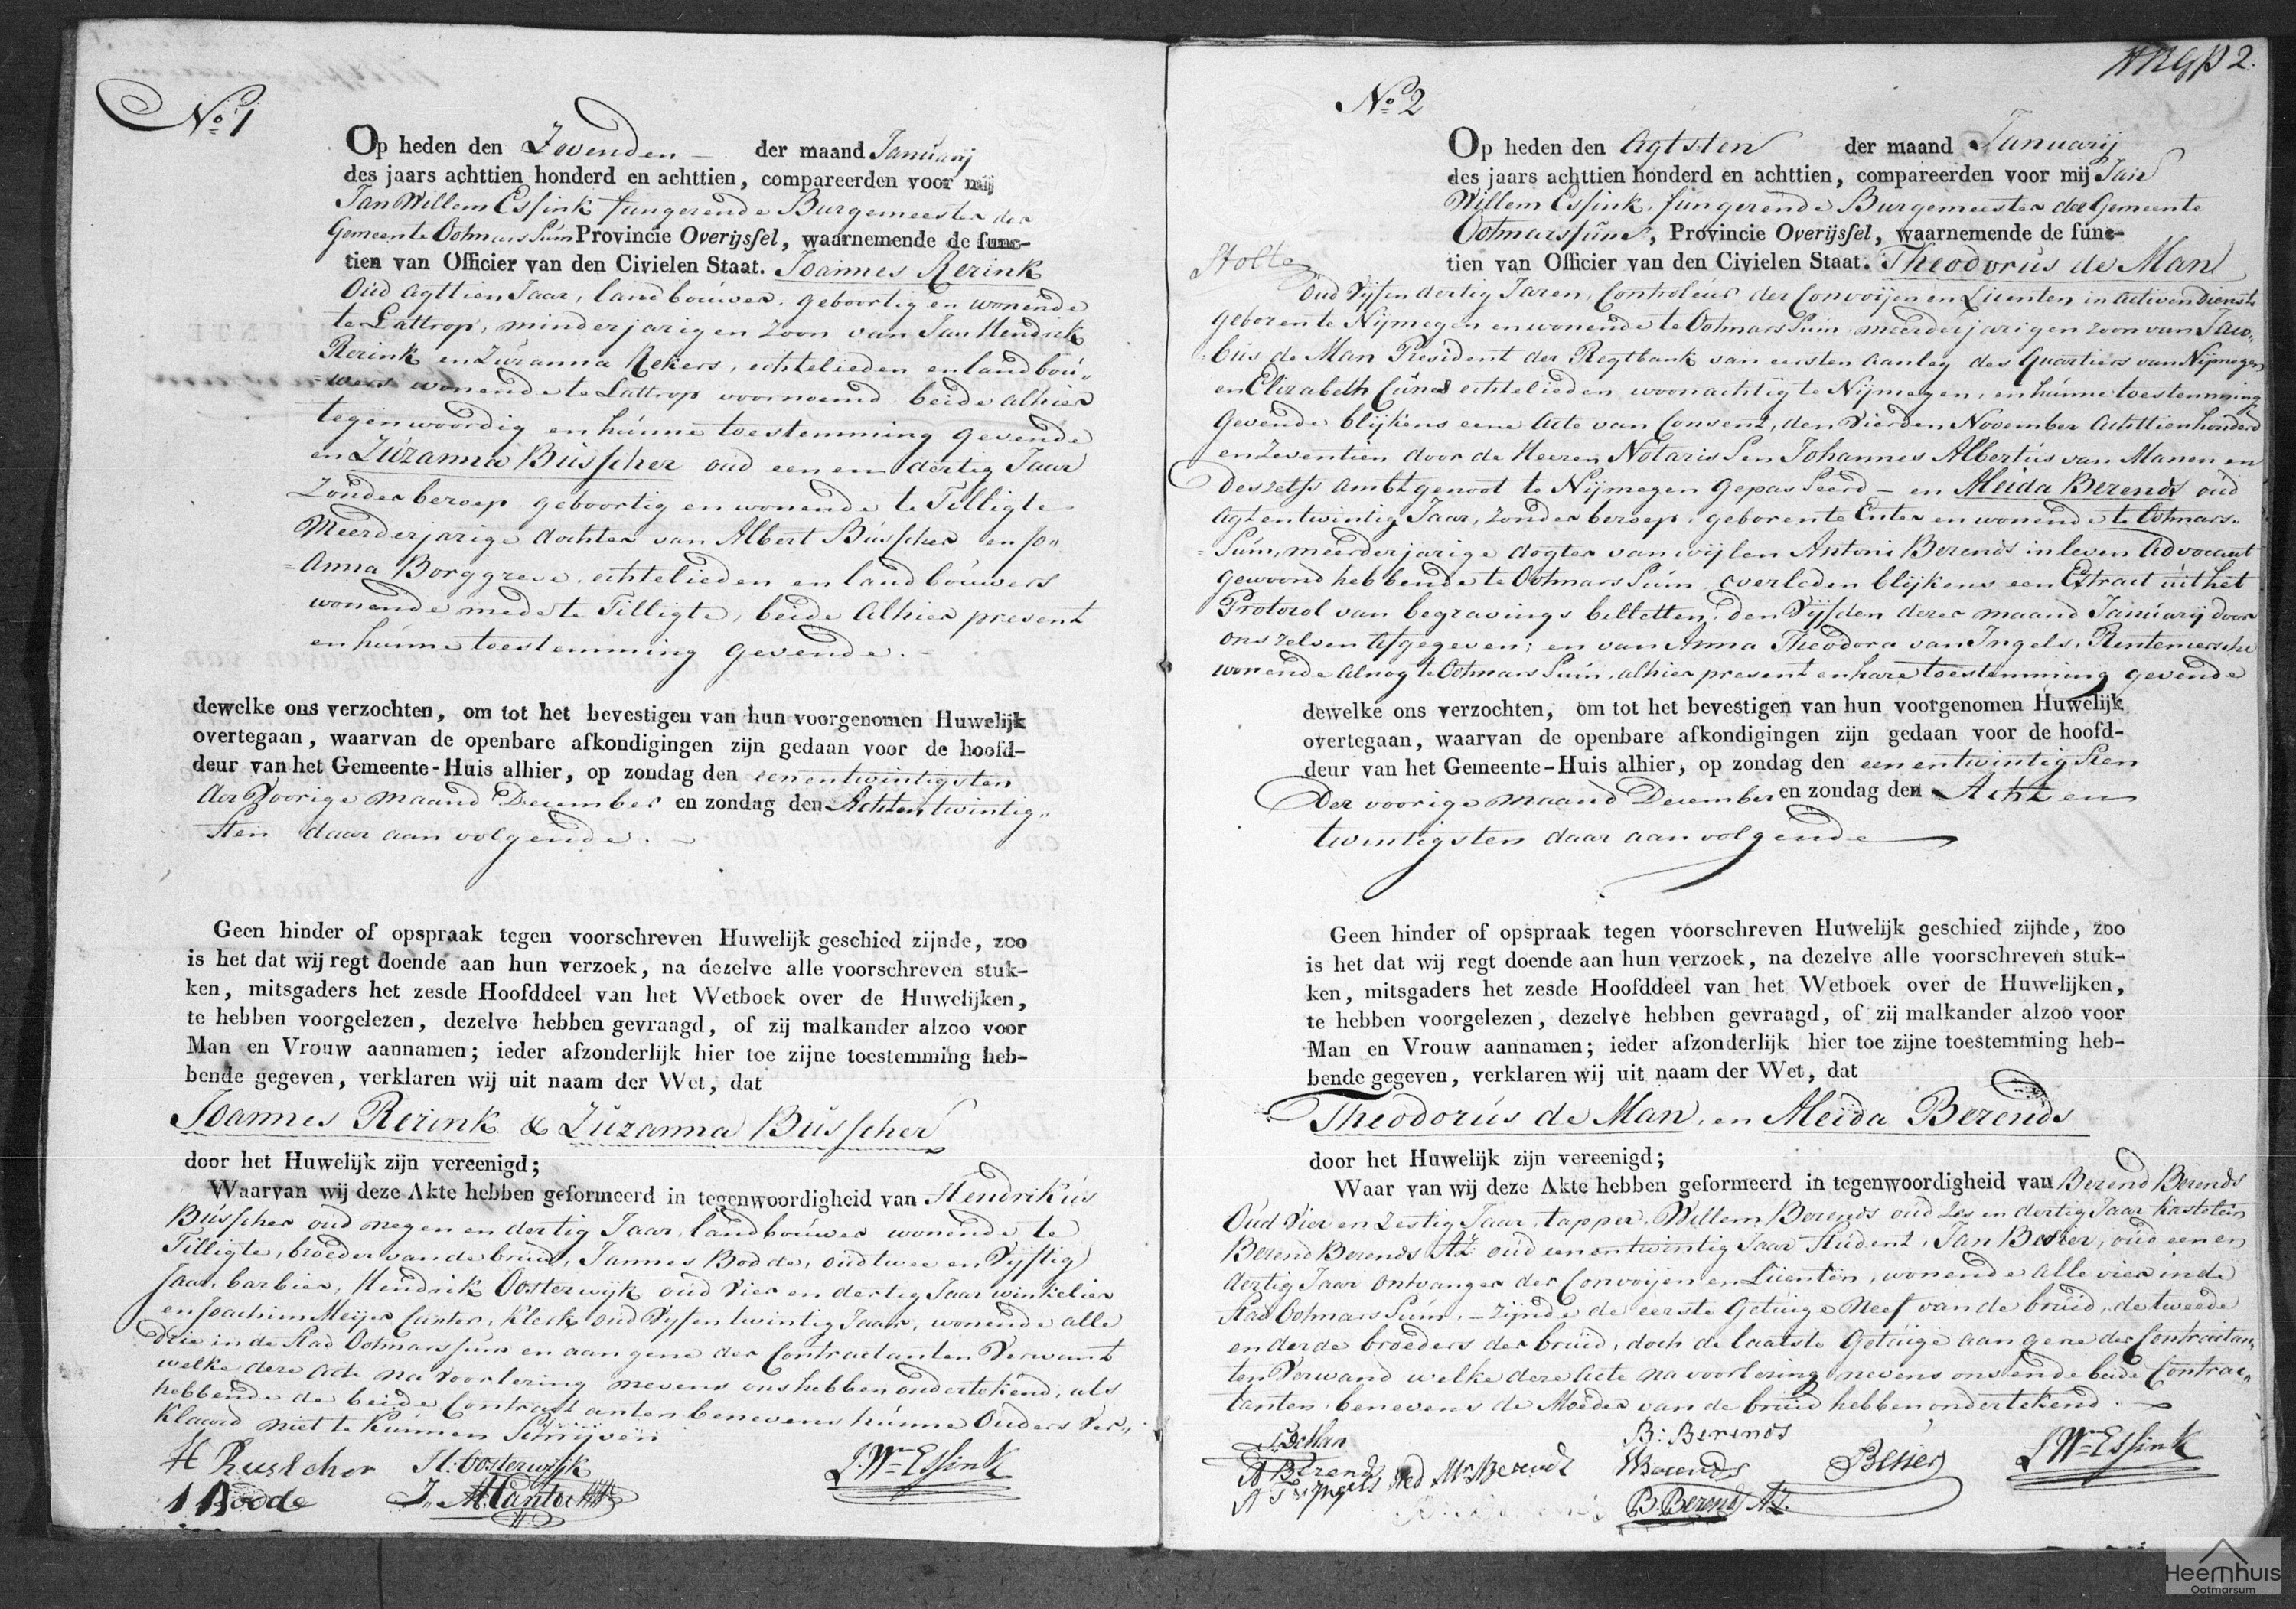 No. 1
Op heden den Zevenden – der maand Januarij
des jaars achttien honderd en achttien, compareerden voor mij
Jan Willem Essink fungerende Burgemeester der
Gemeente Ootmarssum Provincie Overijssel, waarnemende de func-
tien van Officier van den Civielen Staat. Joannes Rerink
Oud Agttien Jaar, landbouwer, geboortig en wonende
te Lattrop, minderjarigen zoon van Jan Hendrik
Rerink en Zuzanna Rekers, echtelieden en landbou„
=wers wonende te Lattrop voornoemd beide alhier
tegenwoordig en hunne toestemming gevende
en Zuzanna Busscher oud een en dertig Jaar
Zonder beroep geboortig en wonende te Tilligte
Meerderjarige dochter van Albert Busscher en Jo„
=Anna Borggreve, echtelieden en landbouwers
wonende mede te Tilligte, beide alhier present
en hunne toestemming gevende. –
dewelke ons verzochten, om tot het bevestigen van hun voorgenomen Huwelijk
overtegaan, waarvan de openbare afkondigingen zijn gedaan voor de hoofd-
deur van het Gemeente-Huis alhier, op zondag den een en twintigsten
der Voorige maand December en zondag den Achten twintig„
sten daar aan volgende. –
Geen hinder of opspraak tegen voorschreven Huwelijk geschied zijnde, zoo
is het dat wij regt doende aan hun verzoek, na dezelve alle voorschreven stuk-
ken, mitsgaders het zesde Hoofddeel van het Wetboek over de Huwelijken,
te hebben voorgelezen, dezelve hebben gevraagd, of zij malkander alzoo voor
Man en Vrouw aannamen; ieder afzonderlijk hier toe zijne toestemming heb-
bende gegeven, verklaren wij uit naam der Wet, dat
Joannes Rerink & Zuzanna Busscher
door het Huwelijk zijn vereenigd;
Waarvan wij deze Akte hebben geformeerd in tegenwoordigheid van Hendrikus
Busscher oud negen en dertig Jaar, landbouwer wonende te
Tilligte, broeder van de bruid, Jannes Bodde, oud twee en Vyftig
Jaar, barbier, Hendrik Oosterwijk oud Vier en dertig Jaar winkelier
en Joachim Meijer Cantor, Klerk oud Vyf en twintig Jaar, wonende alle
drie in de Stad Ootmarssum en aan gene der Contractanten Verwant
welke deze Acte na voorlezing nevens ons hebben ondertekend, als
hebbende de beide Contractanten benevens hunne Ouders Ver„
klaard niet te kunnen Schrijven
H Busscher H: Oosterwijk J. Wm Essink
J Bodde J. M. Cantor
No. 2
2.
Op heden den Agtsten der maand Januarij
des jaars achttien honderd en achttien, compareerden voor mij Jan
Willem Essink, fungerende Burgemeester der Gemeente
Ootmarssum, Provincie Overijssel, waarnemende de func-
tien van Officier van den Civielen Staat. Theodorus de Man
Oud Vyf en dertig Jaren, Controleur der Convoijen en Licenten in activen dienst
geboren te Nijmegen en wonende te Ootmarssum meerderjarigen zoon van Jaco„
bus de Man President der Regtbank van eersten Aanleg des Quartiers van Nijmegen
en Elizabeth echtelieden woonachtig te Nijmegen, en hunne toestemming
Gevende blijkens eene Acte van Consent, den Vierden November Achttienhonderd
en Zeventien door de Heeren Notarissen Johannes Albertus van Manen en
Deszelfs Ambtgenoot te Nijmegen Gepasseerd – en Aleida Berends oud
Agt en twintig Jaar, Zonder beroep, geboren te Enter en wonende te Ootmars„
=Sum, meerderjarige dogter van wijlen Antoni Berends in leven Advocaat
Gewoond hebbende te Ootmarssum overleden blijkens een Extract uit het
Protocol van begravings billetten, den Vyfden dezer maand Januarij door
ons zelven Afgegeven; en van Anna Theodora van Ingels, Renteniersche
wonende alnog te Ootmarssum, alhier present en hare toestemming gevende
dewelke ons verzochten, om tot het bevestigen van hun voorgenomen Huwelijk
overtegaan, waarvan de openbare afkondigingen zijn gedaan voor de hoofd-
deur van het Gemeente-Huis alhier, op zondag den een en twintigsten
Der voorige maand December en zondag den Acht en
twintigsten daar aan volgende
Geen hinder of opspraak tegen voorschreven Huwelijk geschied zijnde, zoo
is het dat wij regt doende aan hun verzoek, na dezelve alle voorschreven stuk-
ken, mitsgaders het zesde Hoofddeel van het Wetboek over de Huwelijken,
te hebben voorgelezen, dezelve hebben gevraagd, of zij malkander alzoo voor
Man en Vrouw aannamen; ieder afzonderlijk hier toe zijne toestemming heb-
bende gegeven, verklaren wij uit naam der Wet, dat
Theodorus de Man, en Aleida Berends
door het Huwelijk zijn vereenigd;
Waar van wij deze Akte hebben geformeerd in tegenwoordigheid van Berend Berends
Oud Vier en Zestig Jaar, tapper, Willem Berends oud Zes en dertig Jaar kastelein
Berend Berends Az. oud een en twintig Jaar Student, Jan Besier, oud een en
dertig Jaar Ontvanger der Convoijen en Licenten, wonende alle vier in de
Stad Ootmarssum, – zijnde de eerste Getuige Neef van de bruid, de tweede
en derde broeders der bruid, doch de laatste Getuige aan gene der Contractan„
ten Verwand welke deze Acte na voorlezing nevens ons en de beide Contrac„
tanten, benevens de Moeder van de bruid hebben ondertekend. –
T. de Man B: Berends
A Berends WBerends Besier J. Wm Essink
A T v: Ingels Wed Mr Berends B. Berends Az.
Heemhuis
Ootmarsum